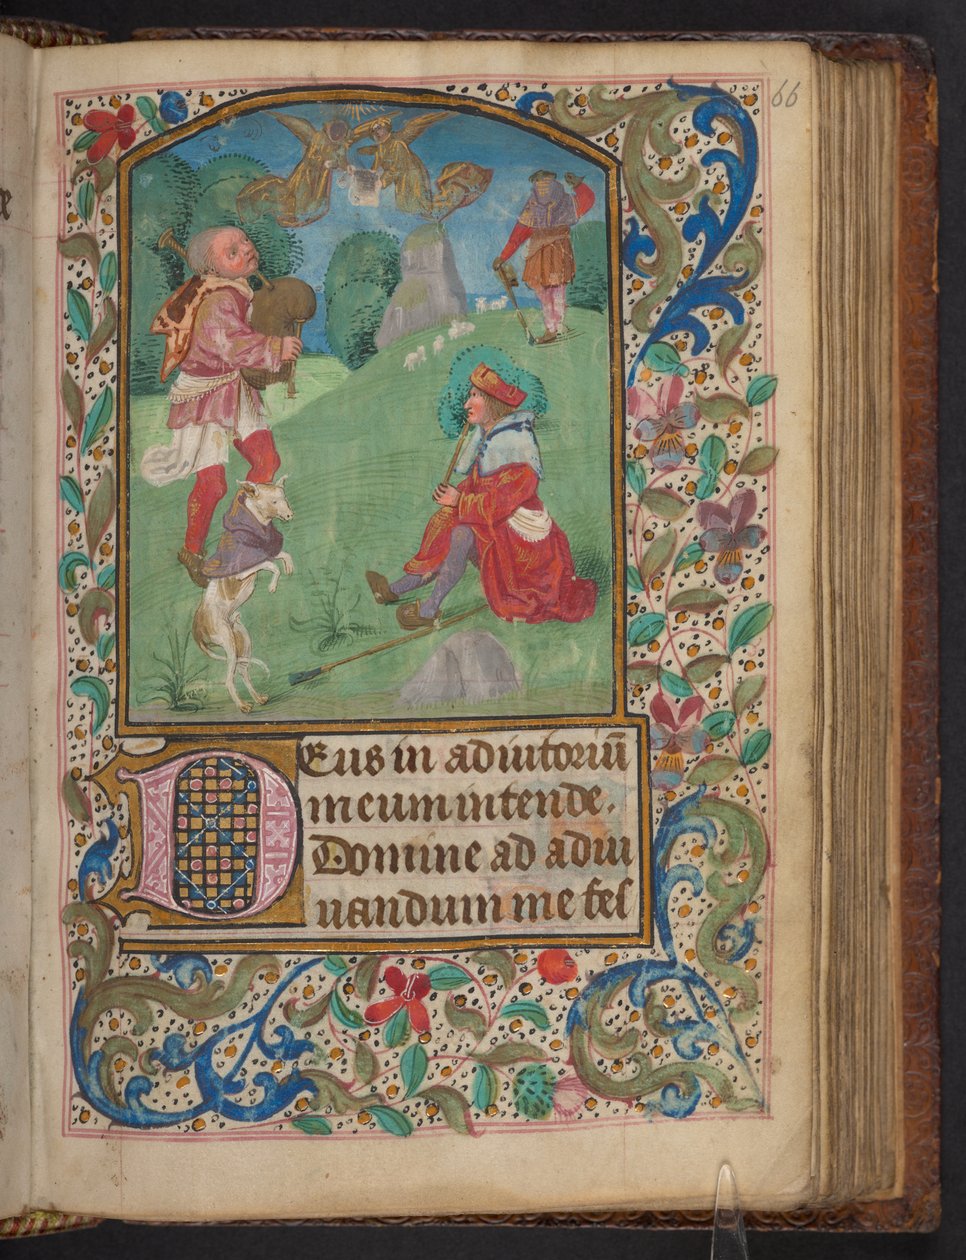 66
Deus in adiutoriū
meum intende.
Domine ad adiu
uandum me fes